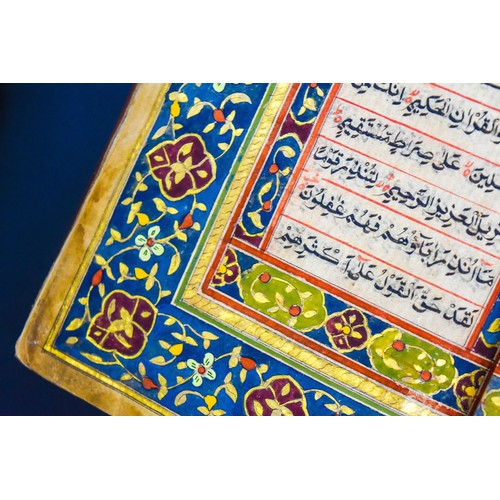 القرآن الحكيم انك لمن
عَلىٰ صِرَاطٍ مُسْتَقِيمٍ
العزيز الرحيم لتنذر قومًا
مَا أُنذِرَ اٰبَاؤُهُمْ فَهُمْ غٰفِلُونَ
لَقَدْ حَقَّ الْقَوْلُ عَلىٰ اَكْثَرِهِمْ